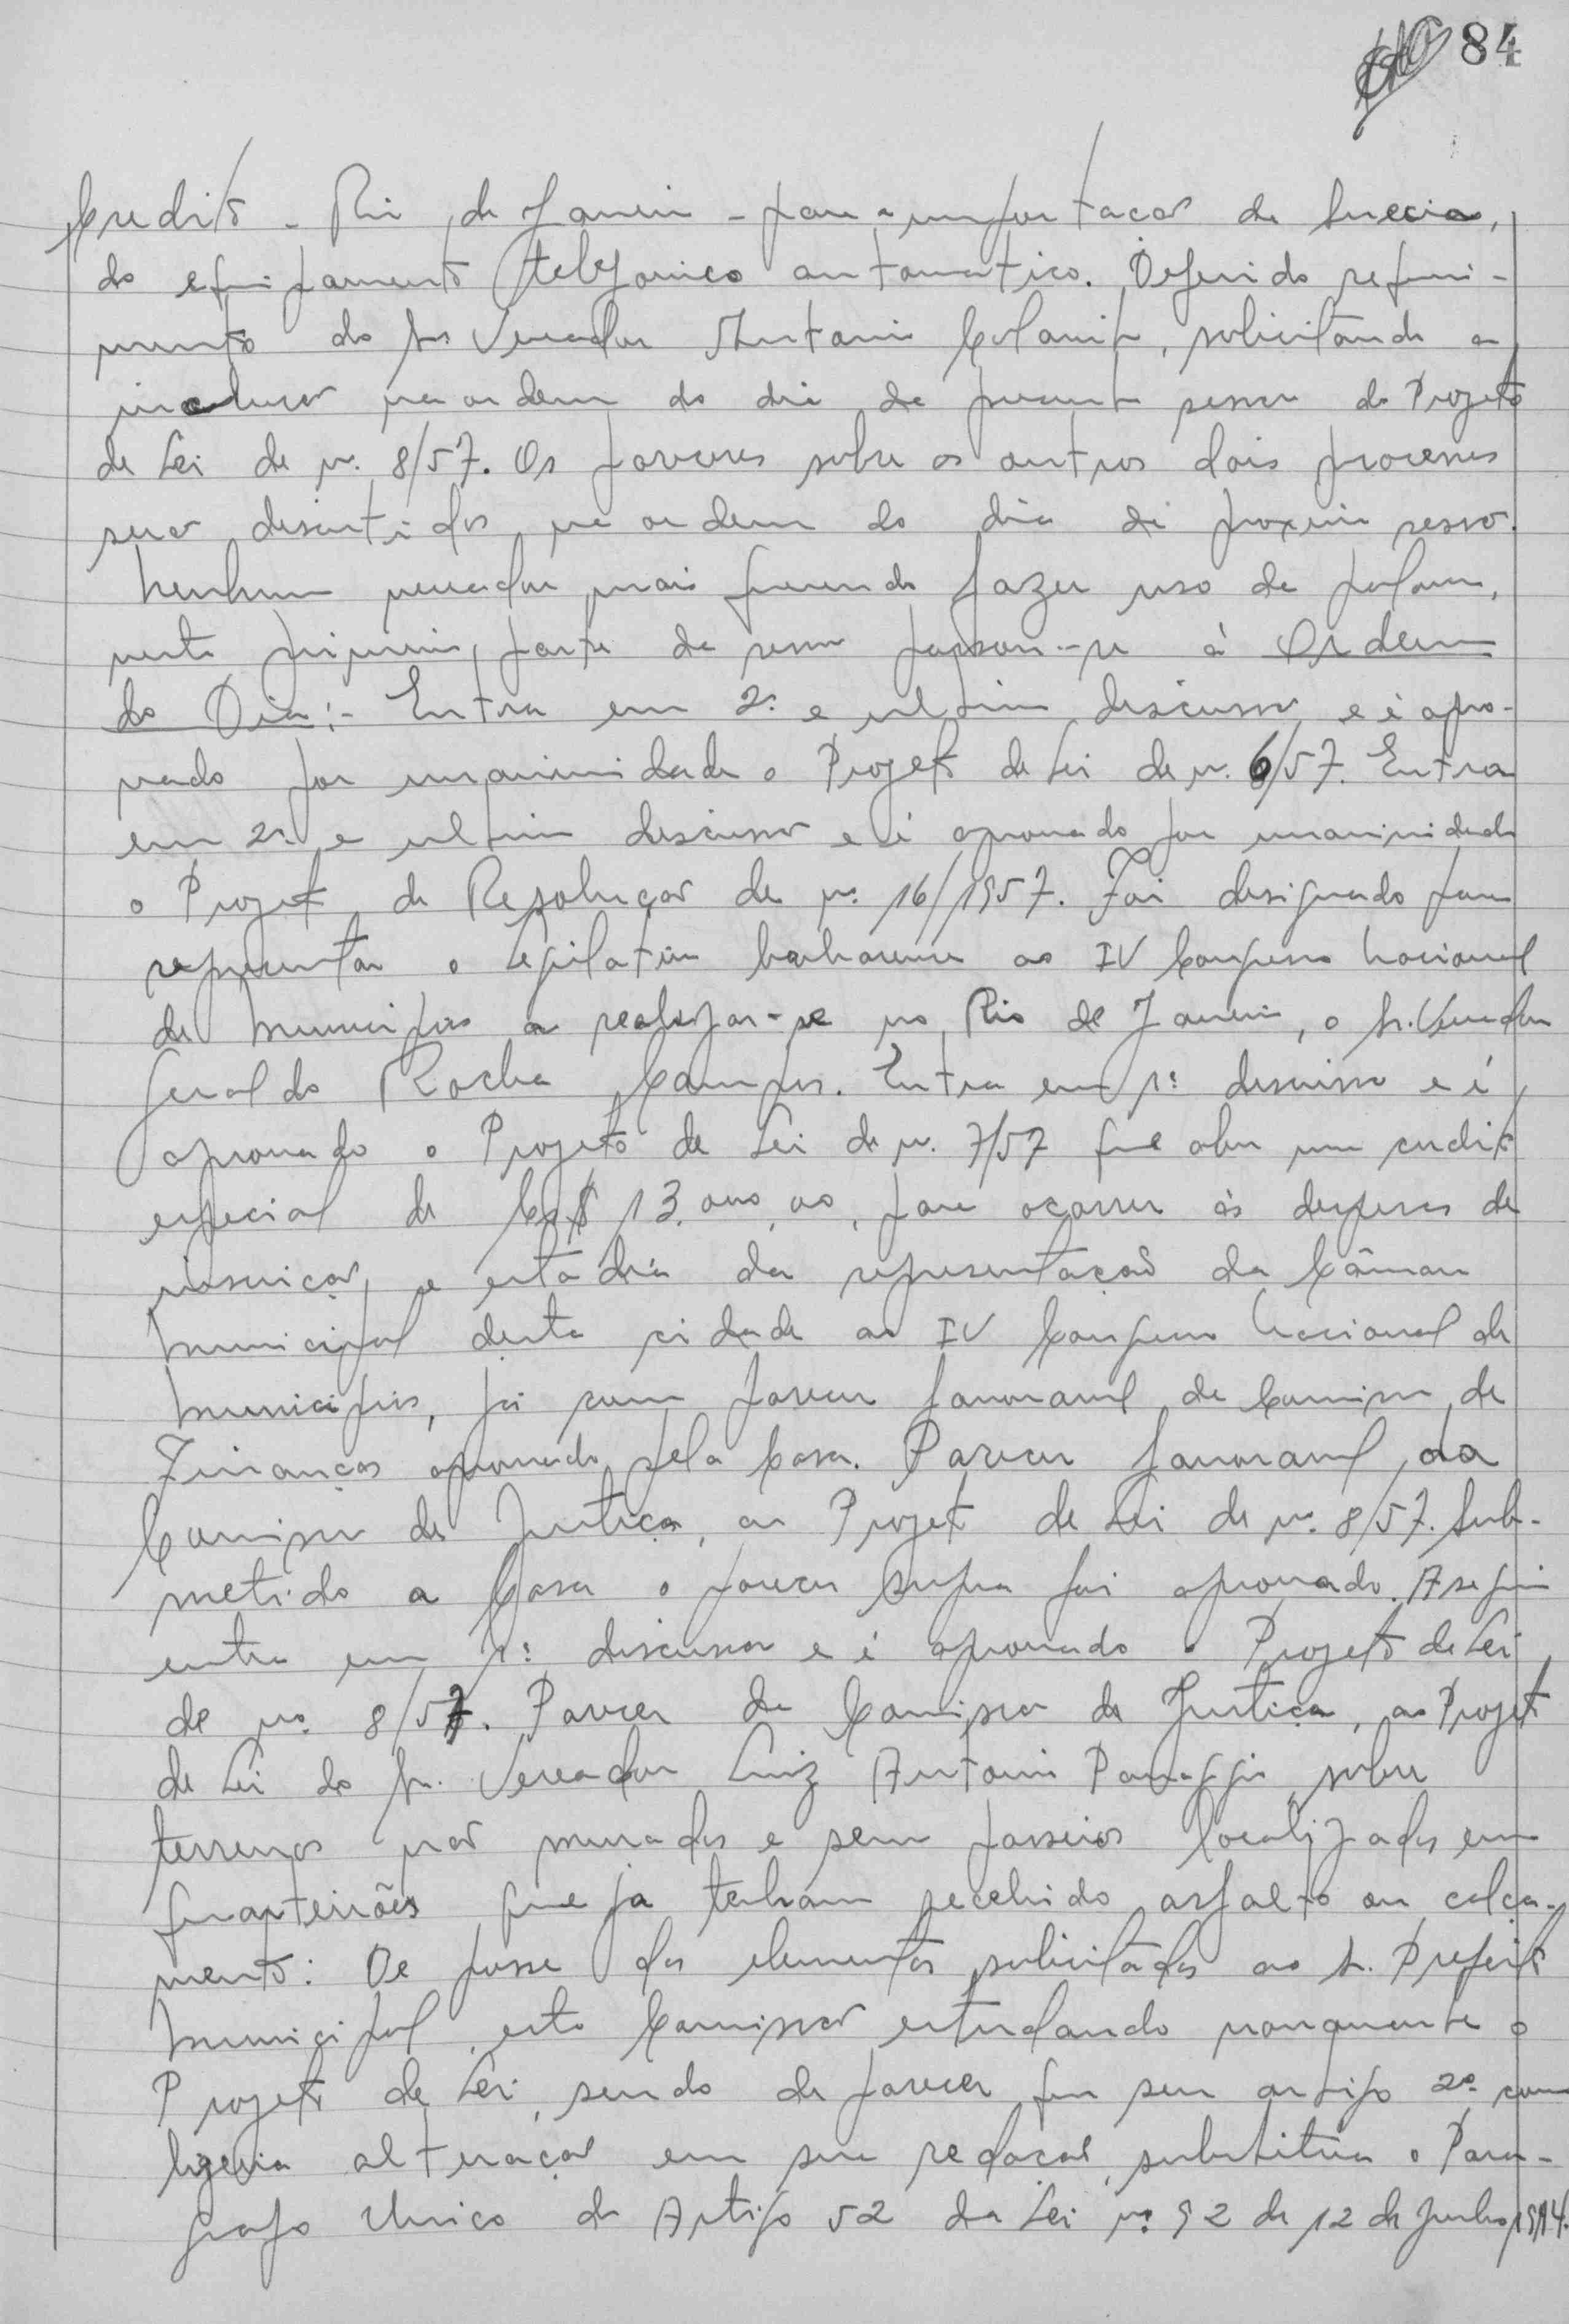 84
Credito - Rio de Janeiro - para a importação da Suecia,
do equipamento telefonico automatico. Deferido requeri-
mento do Sr Vereador Antonio , solicitando a
inclusão na ordem do dia da presente sessão do Projeto
de Lei de nº. 8/57. Os pareceres sobre os outros dois processos
serão discutidos na ordem do dia da proxima sessão.
Nenhum vereador mais querendo fazer uso da palavra,
nesta primeira parte da sessão passou-se à Ordem
do Dia:- Entra em 2ª e ultima discussão e é apro-
vado por unanimidade o Projeto de Lei de nº. 6/57. Entra
em 2ª e ultima discussão e é aprovado por unanimidade
o Projeto de Resolução de nº. 16/1957. Foi designado para
representar o Legislativo ao IV Congresso Nacional
de Municipios a realizar-se no Rio de Janeiro, o Sr. Vereador
Geraldo Rocha Campos. Entra em 1ª discussão e é
aprovado o Projeto de Lei de nº. 7/57 que abre um credito
especial de Cr$ 13.000,00, para ocorrer às despesas de
inscrição e estadia da representação da Câmara
Municipal desta cidade ao IV Congresso Nacional de
Municipios, já com parecer favoravel da Comissão de
Finanças aprovado pela Casa. Parecer favoravel da
Comissão de Justiça, ao Projeto de Lei de nº. 8/57. Sub-
metido a Casa o parecer supra foi aprovado. A seguir
entra em 1ª discussão e é aprovado o Projeto de Lei
de nº. 8/57. Parecer da Comissão de Justiça, ao Projeto
de Lei do Sr. Vereador Luiz Antonio sobre
terrenos não murados e sem passeios localizados em
quarteirões que ja tenham recebido asfalto ou calça-
mento: De posse dos elementos solicitados ao Sr. Prefeito
Municipal, esta Comissão estudando novamente o
Projeto de Lei, sendo de parecer que seu artigo 2º com
ligeira alteração em sua redação, substitua o Para-
grafo Unico do Artigo 52 da Lei nº 92 de 12 de Junho